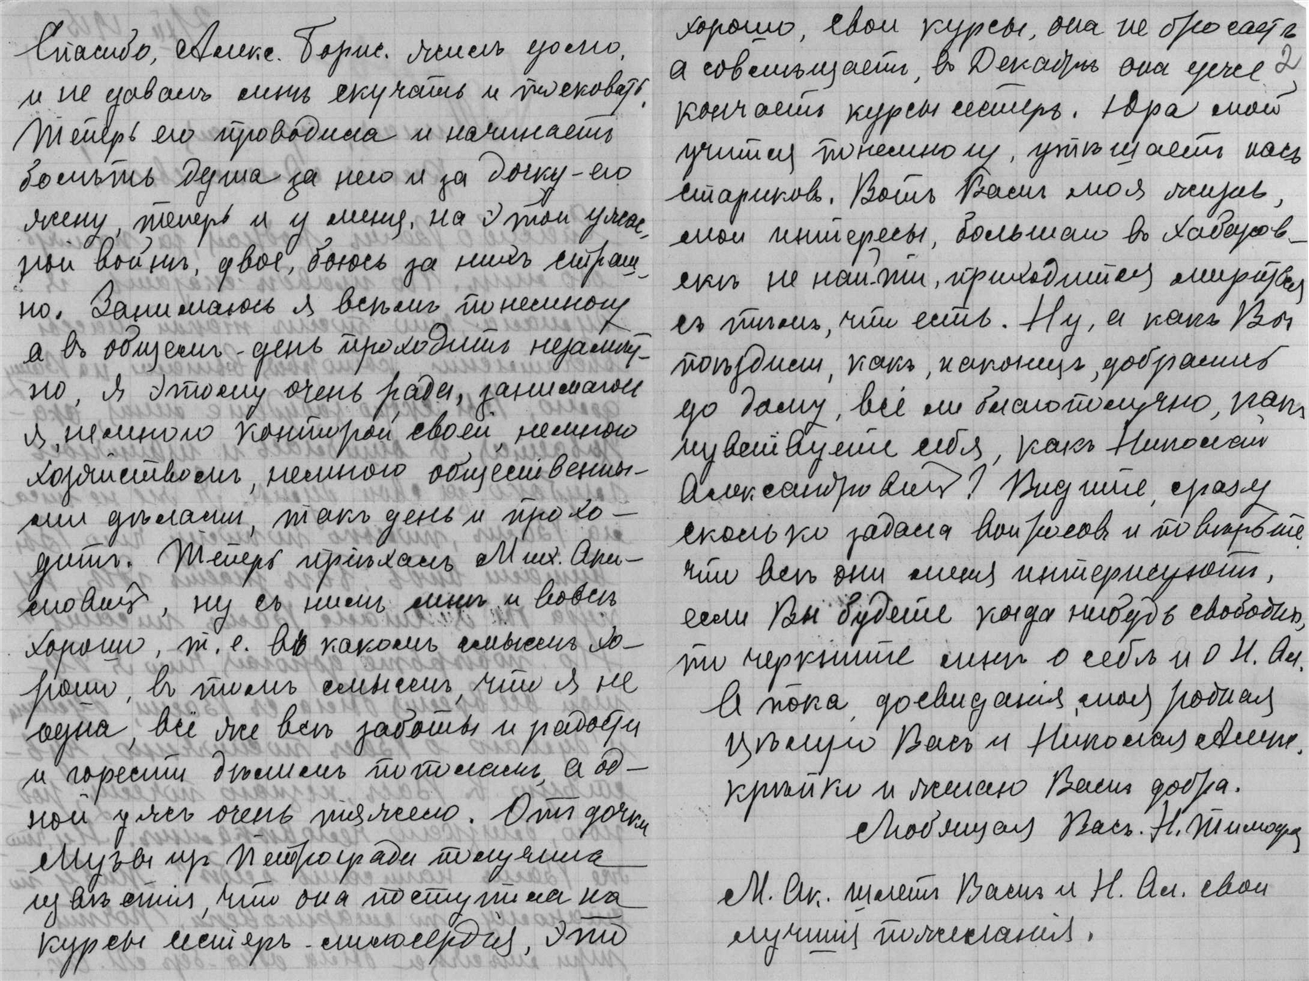 Спасибо, Алекс. Борис. жилъ долго,
и не давалъ мнѣ скучать и тосковать.
Теперь его проводила и начинаетъ
болѣть душа за него и за дочку-его
жену, теперь и у меня, на этой ужас-
ной войнѣ, двое, боюсь за нихъ страш-
но. Занимаюсь я всѣмъ понемногу
а въ общемъ-день проходитъ незамѣт-
но, я этому очень рада, занимаюсь
я, немного конторой своей, немного
хозяйствомъ, немного общественны-
ми дѣлами, такъ день и прохо-
дитъ. Теперь пріѣхалъ Мих. Аки-
мовичъ, ну съ нимъ мнѣ и вовсѣ
хорошо, т.е. въ какомъ смыслѣ хо-
рошо, въ томъ смыслѣ, что я не
одна, всё же всѣ заботы и радости
и горести дѣлимъ пополамъ, а од-
ной ужъ очень тяжело. Отъ дочки
Музы изъ Петрограда получила
извѣстія, что она поступила на
курсы сестеръ-милосердія, это
хорошо, свои курсы, она не бросаетъ
2
а совмѣщаетъ, въ Декабрѣ она уже
кончаетъ курсы сестеръ. Юра мой
учится понемногу, утѣшаетъ насъ
стариковъ. Вотъ Вамъ моя жизнь,
мои интересы, большаго въ Хабаров-
скѣ не найти, приходится мириться
съ тѣмъ, что есть. Ну, а какъ Вы
поѣздили, какъ, наконецъ, добрались
до дому, всё ли благополучно, какъ
чувствуете себя, какъ Николай
Александровичъ? Видите, сразу
сколько задала вопросовъ и повѣрьте,
что всѣ они меня интерисуютъ,
если Вы будете когда нибудь свободны,
то черкните мнѣ о себѣ и о Н. Ал.
А пока, досвиданія, моя родная
Цѣлую Васъ и Николая Алек.
крѣпко и желаю Вамъ добра.
Любящая Васъ. Н.
М. Ак. шлетъ Вамъ и Н. Ал. свои
лучшія пожеланія.